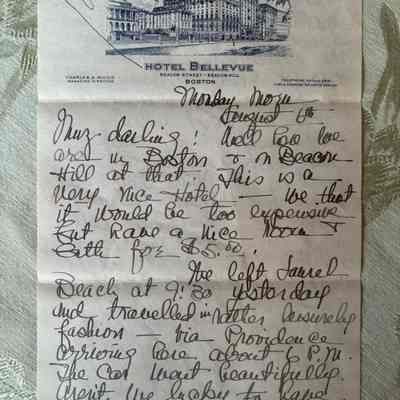 HOTEL BELLEVUE
BEACON STREET - BEACON HILL
BOSTON
MANAGING DIRECTOR
Monday, Morn
August 6th
Muz darling! Well here we
are in Boston & on Beacon
Hill at that. This is a
very nice Hotel — We that
it would be too expensive
but have a nice room &
Bath for $5.00!
We left Laurel
Beach at 9:30 yesterday
and travelled in rather leisurely
fashion — via Providence
arriving here about 6 P.M.
The car went beautifully.
Aren't we lucky to have